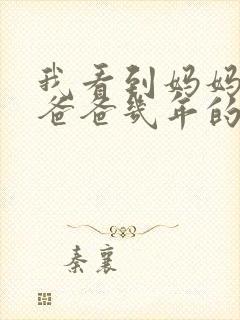 我看到妈妈
爸爸几年的
秦襄